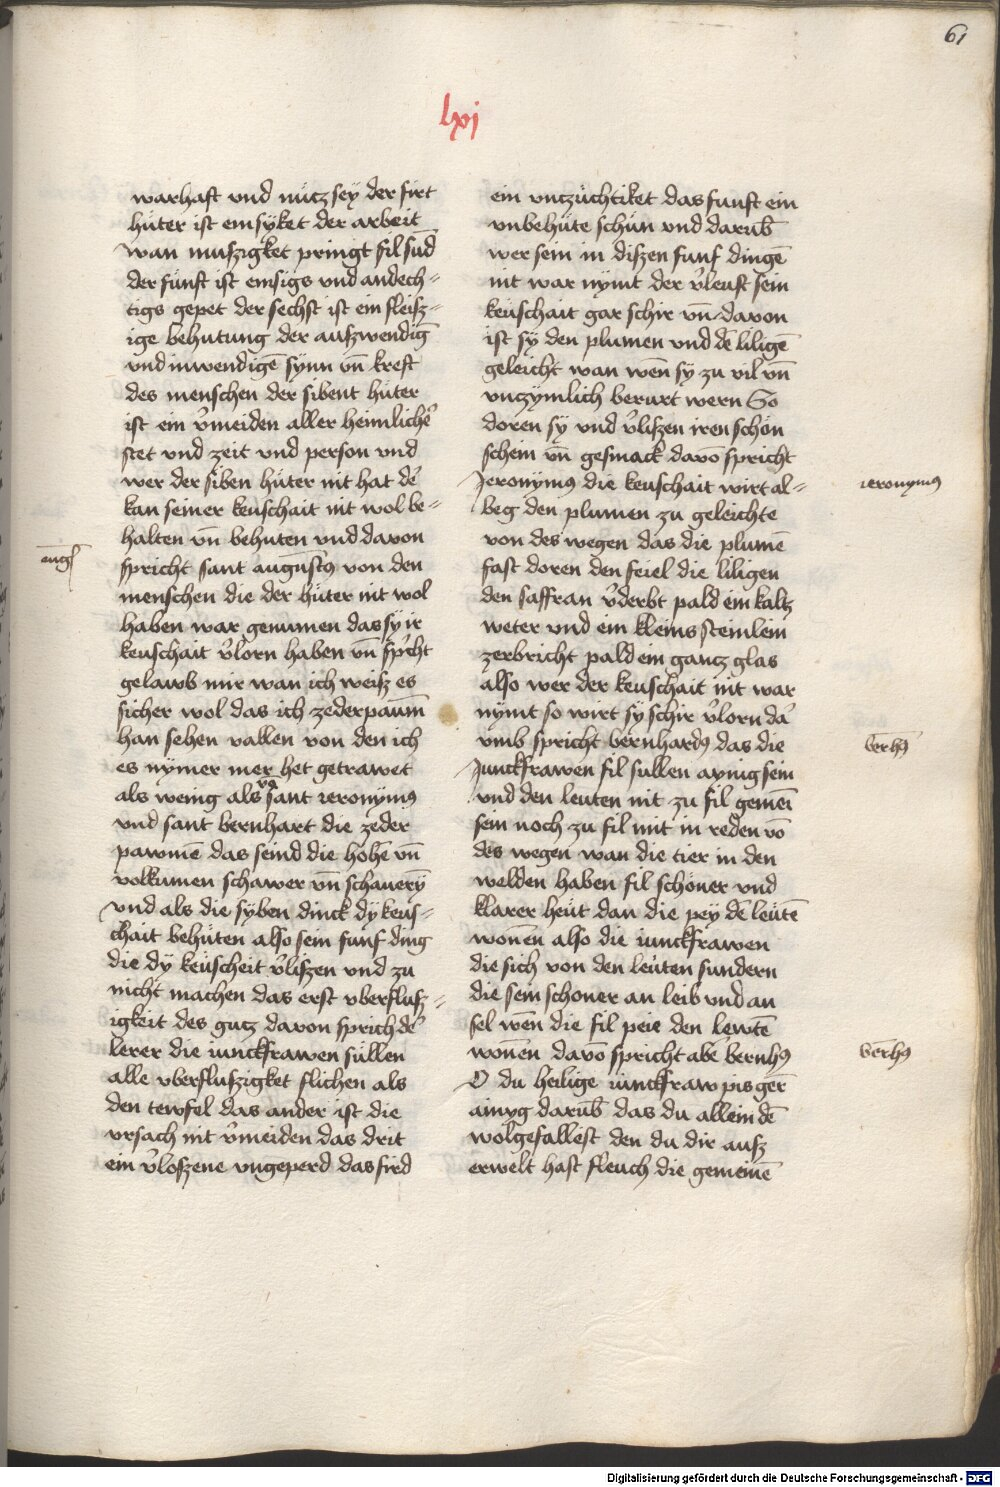 61
lxj
warhaft vnd nücz seÿ der firt
hüter ist emsÿket der arbeit
wan muszigket pringt fil sūd
der fünft ist emsigs vnd andech-
tigs gepet der sechst ist ein fleisz-
ige behutung der auszwendigē
vnd inwendigē synn vn̄ kreft
des menschen der sibent hüter
ist ein v̓meiden aller heimlichē
stet vnd zeit vnd person vnd
wer der siben hüter nit hat de᷑
kan seiner keuschait nit wol be-
halten vn̄ behuten vnd davon
augꝰ
spricht sant augustꝰ von den
menschen die der hüter nit wol
haben war genumen das sy ir
keuschait v̓lorn haben vn̄ sp̓cht
gelawb mir wan ich weisz es
sicher wol das ich zederpaum̄
han sehen vallen von den ich
es nÿmer mer het getrawet
als wenig als vō sant ieronÿmꝰ
vnd sant bernhart die zeder
pawmē das seind die hohē vn̄
volkumen schawer vn̄ schauerÿ
vnd als die sÿben dinck dÿ keus-
chait behüten also sein funf ding
die dÿ keüscheit v̓liszen vnd zu
nicht machen das erst vberflusz-
igkeit des gutz davon sprich de᷑
lerer die iunckfrawen süllen
alle vberfluszigket flichen als
den tewfel das ander ist die
vrsach nit v̓meiden das drit
ein v̓loszene vngeperd das fird
ein vnczüchtiket das funft ein
vnbehüte schün vnd darūb
wer sein in diszen funf dingē
nit war nymt der v̓leust sein
keuschait gar schir vn̄ davon
ist sÿ den plumen vnd dē liligē
geleicht wan wen̄ sÿ zu vil vn̄
vnczymlich berurt wern So
doren sÿ vnd v̓liszen iren schön
schein vn̄ gesmack davō spricht
Jeronÿmꝰ die keuschait wirt al-
ieronymꝰ
beg den plumen zu geleichte
von des wegen das die plumē
fast doren den feiel die liligen
den saffran v̓derbt pald ein kaltz
weter vnd ein kleins steinlein
zerbricht pald ein gancz glas
also wer der keuschait nit war
nÿmt so wirt sÿ schir v̓lorn da᷑
vmb spricht bernhardꝰ das die
bērhꝰ
Junckfrawen fil sullen aynig sein
vnd den leuten nit zu fil gemeī
sein noch zu fil mit in reden vō
des wegen wan die tier in den
welden haben fil schöner vnd
klarer heüt dan die peÿ dē leütē
won̄en also die iunckfrawen
die sich von den leüten sundern
die sein schoner an leib vnd an
sel wen̄ die fil peie den lewtē
won̄en davō spricht abe᷑ bernhꝰ
bērhꝰ
O du heilige iünckfraw pis ger̄
ainyg darūb das du allein dē
wolgefallest den du dir ausz
erwelt hast fleuch die gemeinē
Digitalisierung gefördert durch die Deutsche Forschungsgemeinschaft - DFG